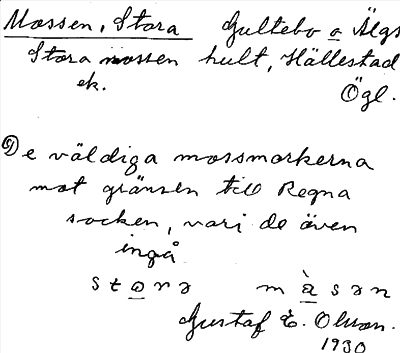 Mossen, Stora Gultebo o Älgs
Stora mossen hult, Hällestad
ek. Ögl.
De väldiga mossmarkerna
mot gränsen till Regna
socken, vari de även
ingå
stɷrə màsən
Gustaf E. Olsson.
1930